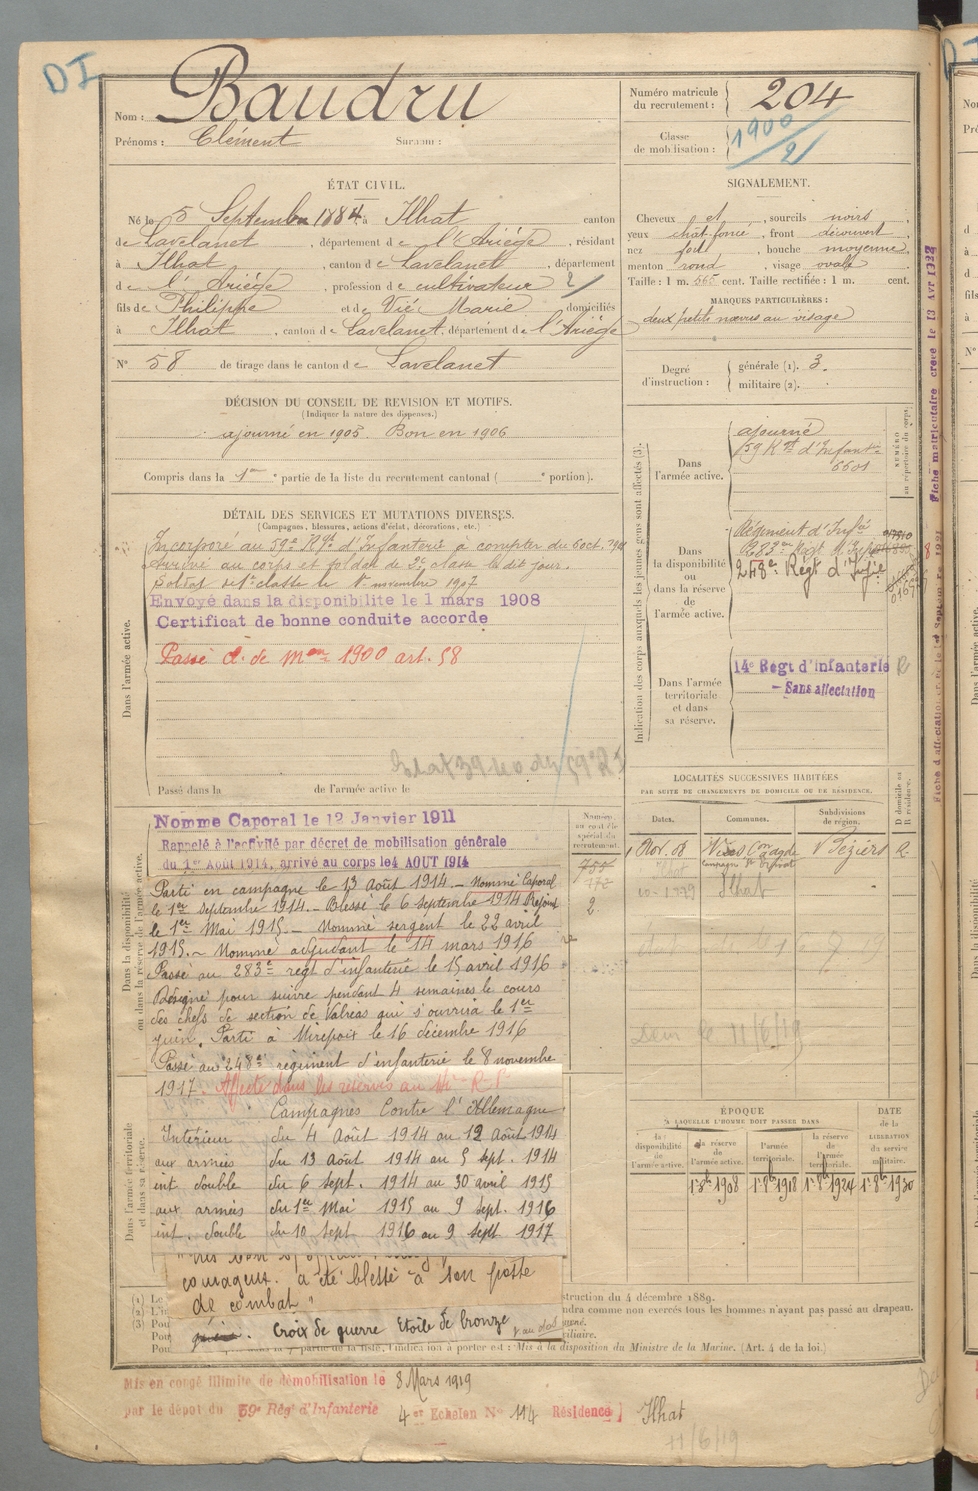 DI
Nom : Baudru
Prénoms : Clément Surnom :
Numéro matricule du recrutement : 204
Classe de mobilisation : 1900 / 2
ÉTAT CIVIL.
Né le 5 Septembre 1884, à Ilhat canton
de Lavelanet, département de l'Ariège, résidant
à Ilhat, canton de Lavelanet, département
de l'Ariège, profession de cultivateur 2/
fils de Philippe et de Vié Marie, domiciliés
à Ilhat, canton de Lavelanet, département de l'Ariège
N° 58 de tirage dans le canton de Lavelanet
SIGNALEMENT.
Cheveux et, sourcils noirs,
yeux chât. foncé, front découvert
nez fort, bouche moyenne,
menton rond, visage ovale
Taille : 1 m. 565 cent. Taille rectifiée : 1 m. cent.
MARQUES PARTICULIÈRES :
deux petits nævus au visage
Degré d'instruction : générale (1). 3.
militaire (2).
DÉCISION DU CONSEIL DE REVISION ET MOTIFS.
(Indiquer la nature des dispenses.)
ajourné en 1905. Bon en 1906
Compris dans la 1re partie de la liste du recrutement cantonal ( e portion).
DÉTAIL DES SERVICES ET MUTATIONS DIVERSES.
(Campagnes, blessures, actions d'éclat, décorations, etc.)
Dans l'armée active.
Incorporé au 59e Rgt d'Infanterie à compter du 6 oct.
Arrivé au corps et soldat de 2e classe le dit jour.
Soldat de 1e classe le 1er novembre 1907
Envoyé dans la disponibilite le 1 mars 1908
Certificat de bonne conduite accorde
Passé cl. de Mon 1900 art. 58
Passé dans la de l'armée active le
Indication des corps auxquels les jeunes gens sont affectés (3).
NUMÉRO au répertoire du corps.
Dans l'armée active.
ajourné
59 Rgt d'Infantie
6601
Dans la disponibilité ou dans la réserve de l'armée active.
Régiment d'Infie
248e Régt d'Infie
Dans l'armée territoriale et dans sa réserve.
14e Regt d'infanterie
- Sans affectation
Fiche matriculaire créée le 13 Avr 1922
Dans la disponibilité ou dans la réserve de l'armée active.
Nomme Caporal le 12 Janvier 1911
Rappelé à l'activité par décret de mobilisation générale
du 1er Août 1914, arrivé au corps le 4 AOUT 1914
Parti en campagne le 13 Août 1914. - Nommé Caporal
le 1er Septembre 1914. - Blessé le 6 septembre 1914 Rejoint
le 1er Mai 1915. - Nommé sergent le 22 avril
1915. - Nommé adjudant le 14 mars 1916
Passé au 283e regt d'infanterie le 15 avril 1916
Désigné pour suivre pendant 4 semaines le cours
des chefs de section de Valréas qui s'ouvrira le 1er
juin. Parti à Mirepoix le 16 décembre 1916
Passé au 248e regiment d'infanterie le 8 novembre
1917. Affecté dans les réserves au
Campagnes Contre l'Allemagne
Intérieur du 4 Août 1914 au 12 Août 1914
aux armées du 13 août 1914 au 5 sept. 1914
int double du 6 sept. 1914 au 30 avril 1915
aux armées du 1er Mai 1915 au 9 Sept. 1916
int. double du 10 sept 1916 au 9 sept 1917
courageux. a été blessé à son poste
de combat"
Croix de guerre Etoile de bronze
Dans l'armée territoriale et dans sa réserve.
Numéro au contrôle spécial du recrutement.
2
LOCALITÉS SUCCESSIVES HABITÉES
PAR SUITE DE CHANGEMENTS DE DOMICILE OU DE RÉSIDENCE.
Dates. Communes. Subdivisions de région. D domicile ou R résidence.
1 Nov. 08 Vias Con Agde Béziers R.
Ilhat
11/6/19
ÉPOQUE
À LAQUELLE L'HOMME DOIT PASSER DANS
la disponibilité de l'armée active.
la réserve de l'armée active.
l'armée territoriale.
la réserve de l'armée territoriale.
DATE de la LIBÉRATION du service militaire.
1 8bre 1908 1er 8bre 1918 1er 8bre 1924 1er 8bre 1930
struction du 4 décembre 1889.
ndra comme non exercés tous les hommes n'ayant pas passé au drapeau.
l'indication à porter est : Mis à la disposition du Ministre de la Marine. (Art. 4 de la loi.)
Mis en congé illimite de démobilisation le 8 Mars 1919
par le dépôt du 59e Rég d'Infanterie 4e Echelon N° 114 Résidence] Ilhat
11/6/19